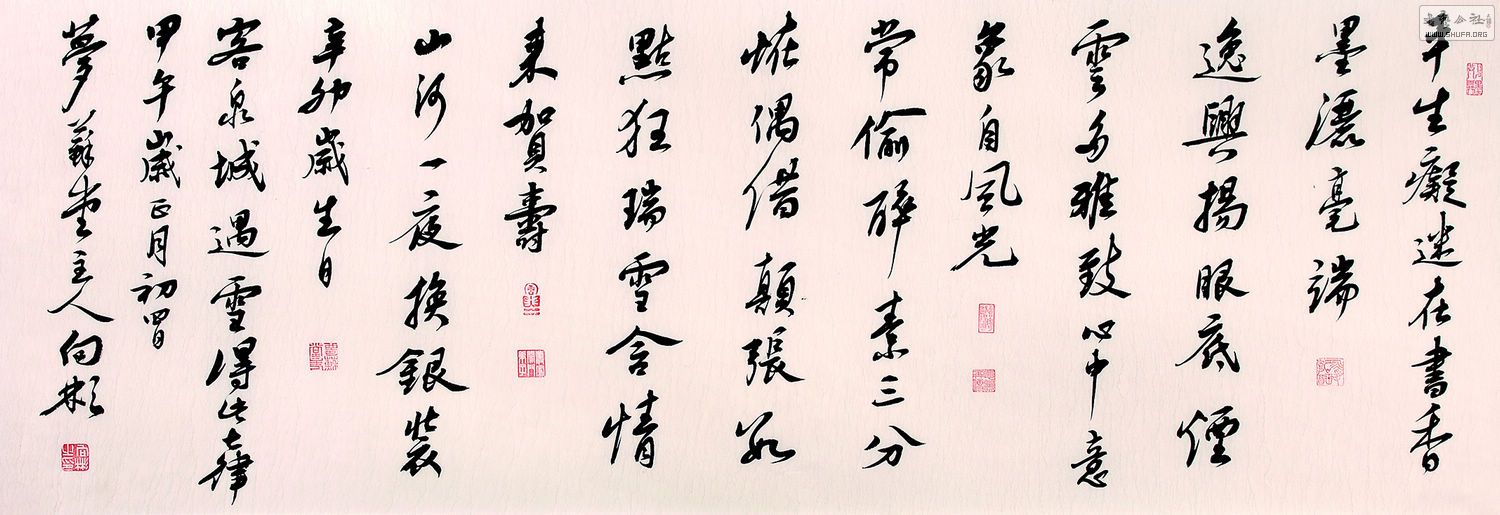 半生癡迷在書香
墨灑毫端
逸興揚眼底煙
雲多雅致心中意
象自風光
常偷醉素三分
恠偶借顛張數
點狂瑞雪含情
来賀壽
山河一夜換銀裝
辛卯歲生日
客泉城遇雪得此七律
甲午歲正月初四日
夢蘇堂主人向彬
公社
WWW.SHUFA.ORG